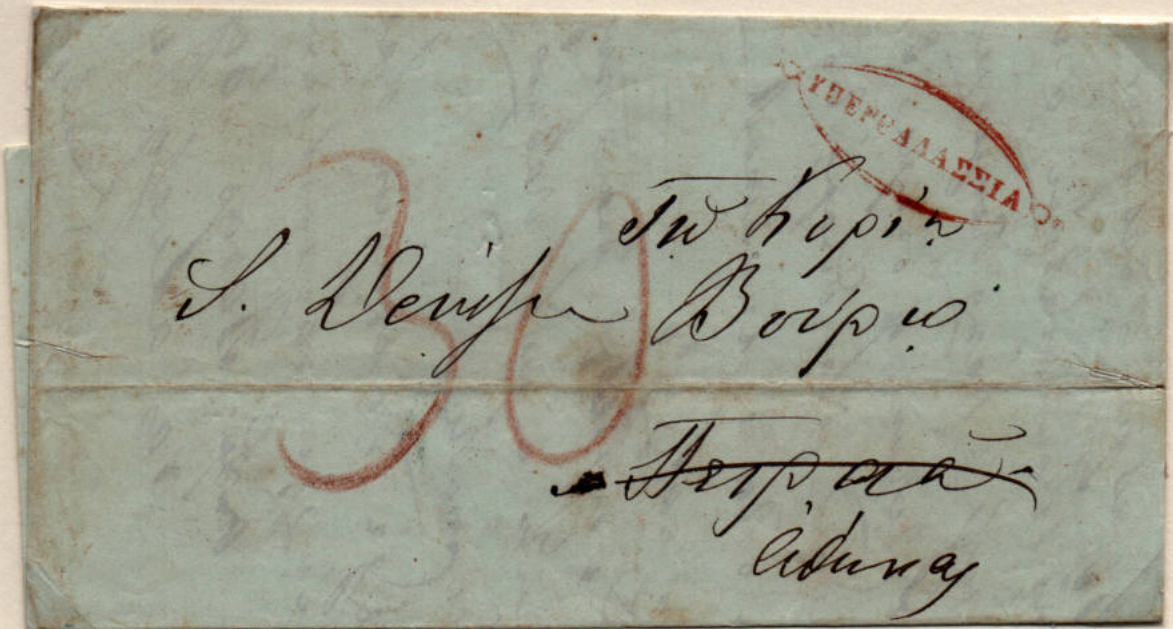 ΥΠΕΡΘΑΛΑΣΣΙΑ
30
Τῷ Κυρίῳ
Βούρῳ
Πειραιᾶ
Ἀθήνας